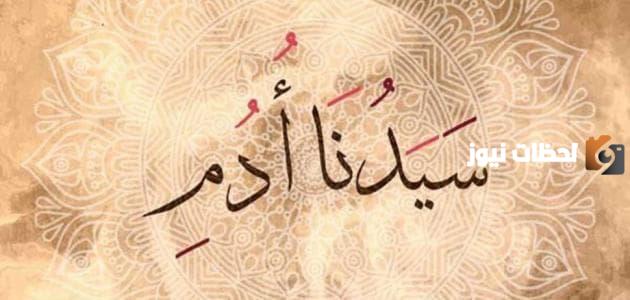 سَيَدُنَا أُدُمِ
لحظات نيوز